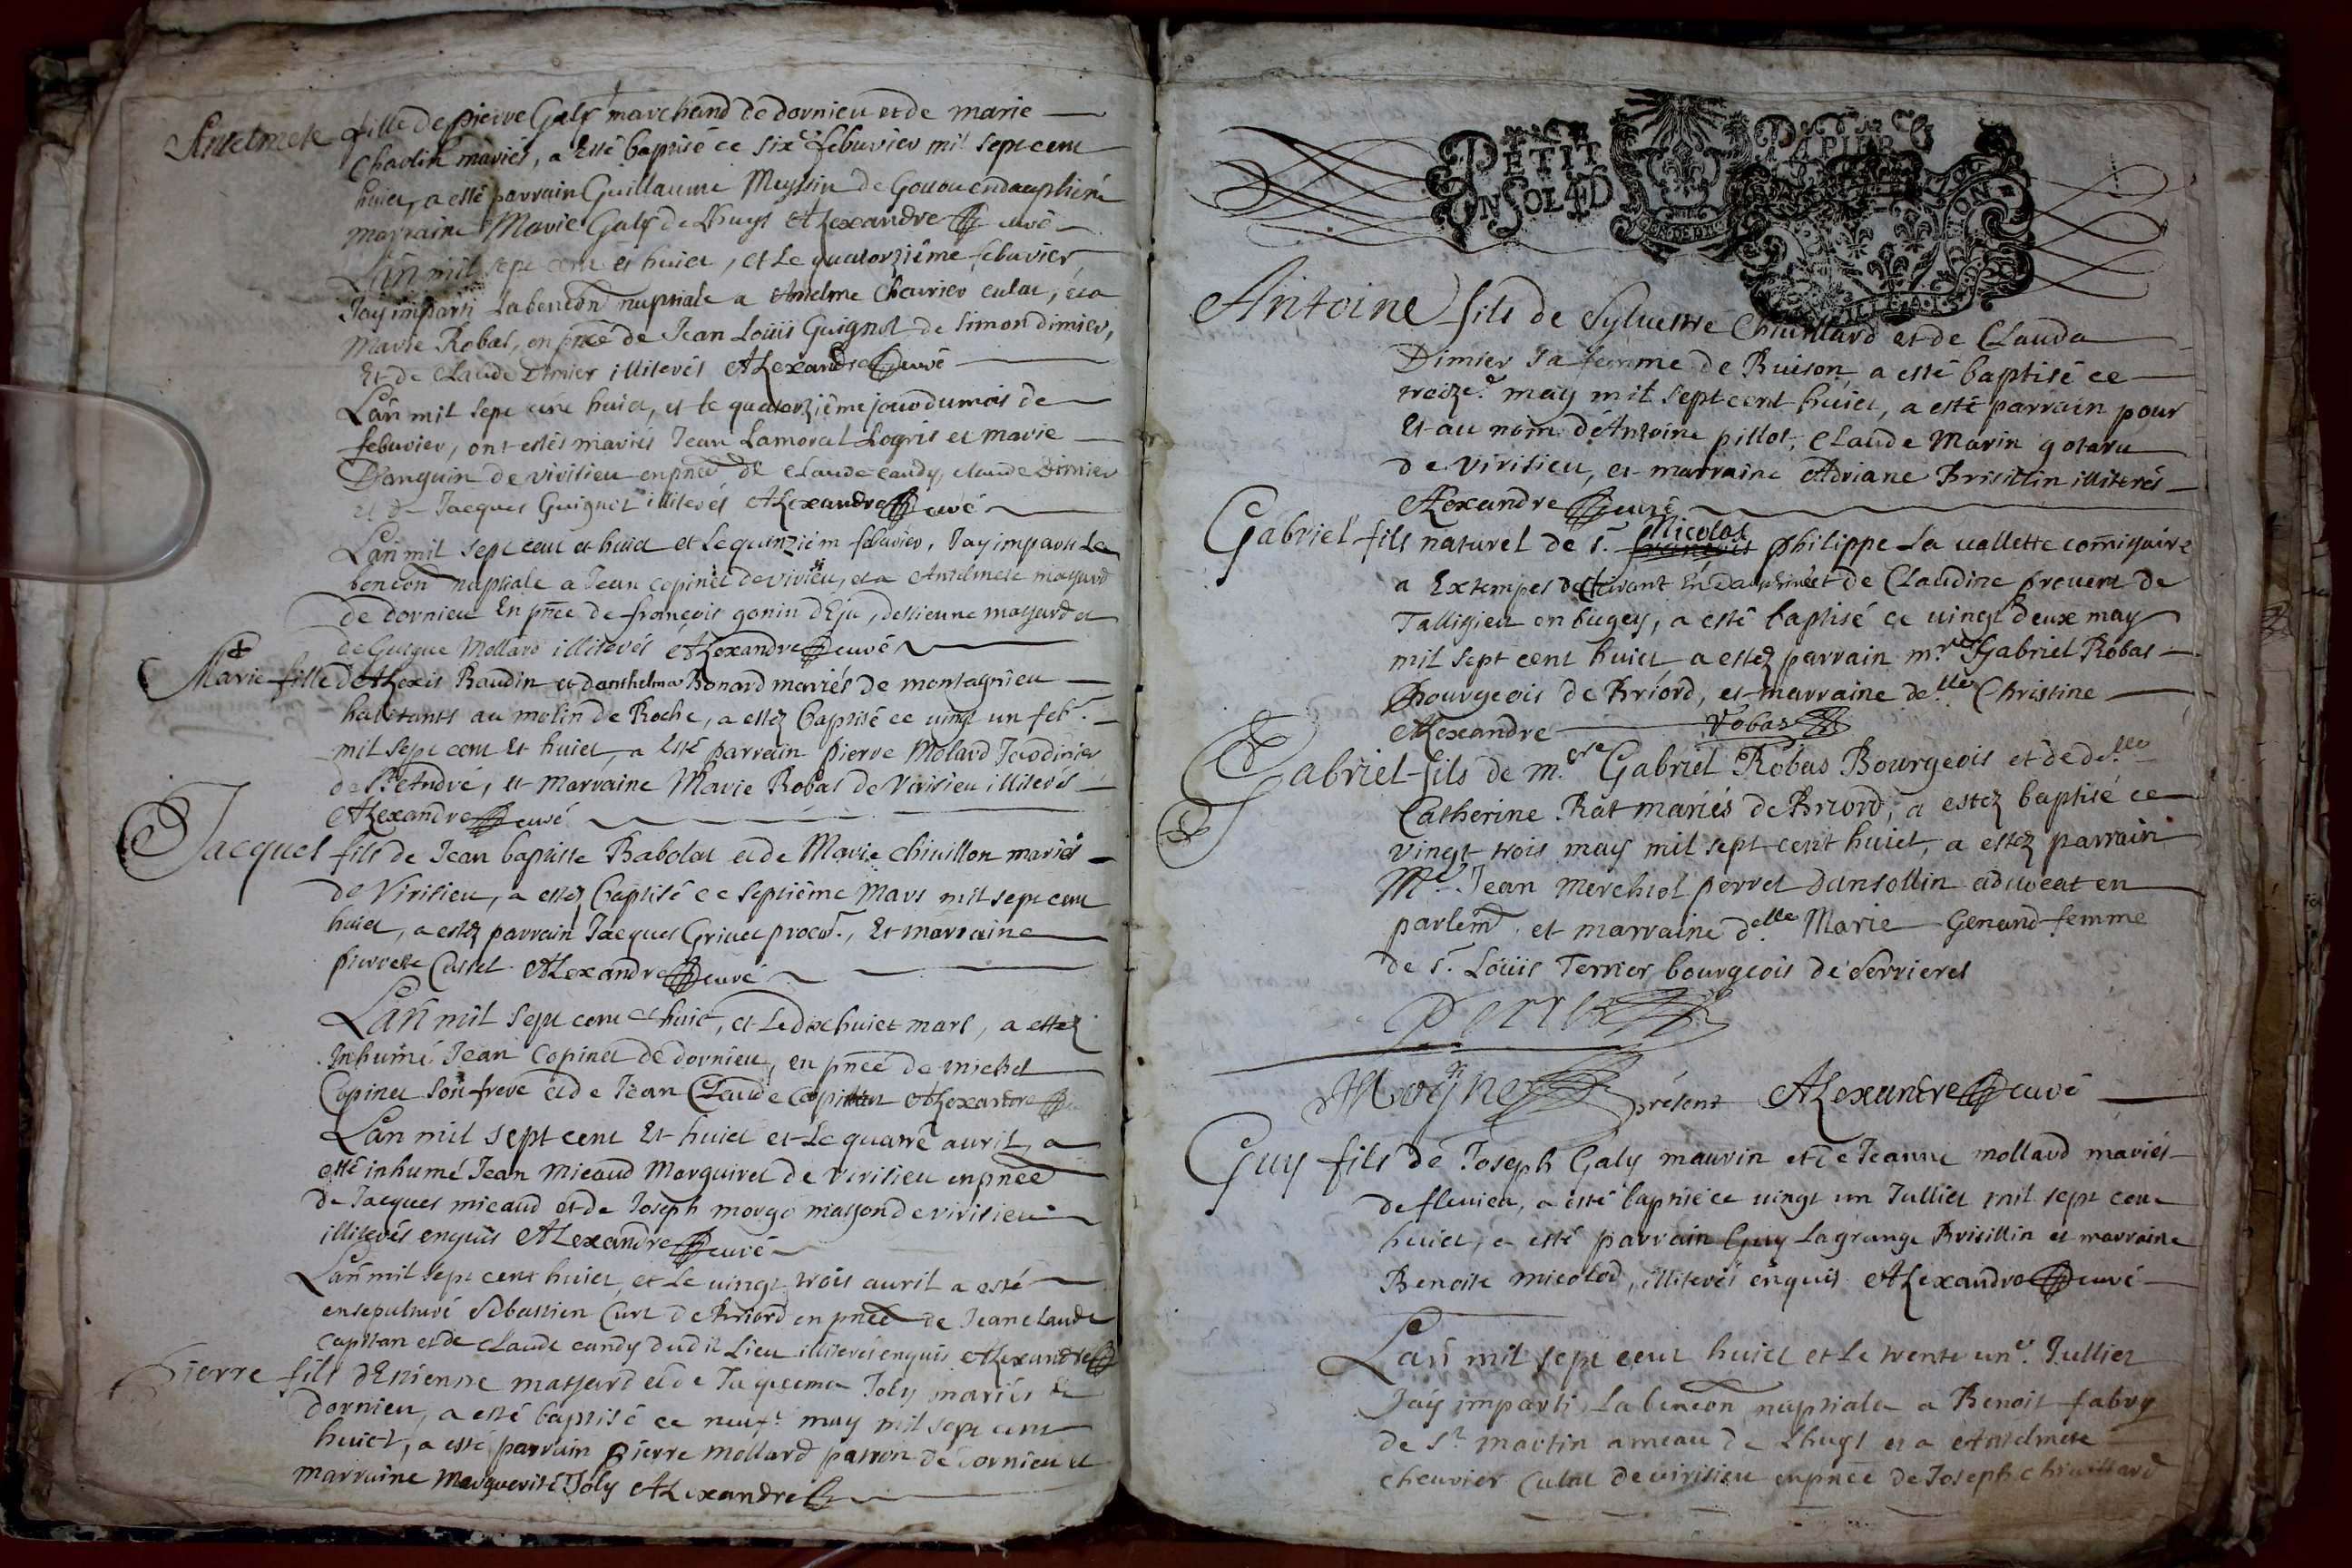 Antelmete fille de pierre Galy marchand de dornieu et de marie
Chaolin mariés, a esté baptisé ce six.e febuvier mil sept cent
huict, a esté parrain Guillaume Meyssin de en dauphiné
marraine Marie Galy de Lhuys Alexandre curé
Lan mil sept cent et huict, et Le quatorziéme febuvier
Jay imparti La bencon nuptiale a Antelme Cheuvrier culat, et a
Marie Robat, en pnce de Jean Loüis Guignot de Simon dimier,
Et de Claude Dimier illiterés Alexandre curé
Lan mil sept cent huict, et le quatorziéme jour du mois de
febuvier, ont estés mariés Jean Lamoral Logris et marie
Danguin de virisieu en pnce de Claude candy, claude Dimier
et de Jacques Guignot illiterés Alexandre curé
Lan mil sept cent et huict et Le quinziem febuvier, Jay imparti La
bencon nuptiale a Jean copinet de virisieu, et a Antelmete massard
de dornieu En pnce de françois gonin , destienne massard et
de Guigue Mollard illiterés Alexandre curé
Marie fille de Alexis Baudin et danthelma Bonard mariés de montagnieu
habitants au molin de Roche, a estez Baptisé ce vingt un feb.
mil sept cent Et huict, a Esté parrain pierre Molard
de St. André, et Marraine Marie Robat de Virisieu illiterés
Alexandre curé
Jacques fils de Jean baptiste Babolat et de Marie chivillon mariés
de Virisieu, a estez Baptisé ce septiéme Mars mil sept cent
huict, a estez parrain Jacques Grivet procur., Et marraine
pierrette Cassel Alexandre curé
Lan mil sept cent et huict, et Le dix huict mars, a estez
Inhumé Jean Copinet de dornieu, en pnce de michel
Copinet son frere et de Jean Claude Capitan Alexandre
Lan mil sept cent Et huict et Le quatre avril, a
esté inhumé Jean Micaud Marguiret de Virisieu en pnce
de Jacques micaud et de Joseph morge masson de virisieu
illiterés enquis Alexandre curé
Lan mil sept cent huict, et Le vingt trois avril a esté
ensepulturé Sebastien Curt de Briord en pnce de Jean claude
capitan et de Claude candy dudit Lieu illiterés enquis Alexandre
Pierre fils d'Estienne massard et de Jaquema Joly mariés de
dornieu, a esté baptisé ce neuf.e may mil sept cent
huict, a esté parrain Pierre Mollard patron de dornieu et
marraine Marguerite Joly Alexandre
PETIT PAPIER
UN SOL 4 D
Antoine fils de Sylvestre Chuillard et de Clauda
Dimier sa femme de Buison a esté baptisé ce
treize.e may mil sept cent huict, a esté parrain pour
Et au nom d'Antoine pillot, Claude Marin gotaru
de Virisieu, et marraine Adriane Brisillin illiterés
Alexandre curé
Gabriel fils naturel de s.r Nicolas philippe La vallette commissaire
a Extempes devant En dauphiné et de Claudine prevent de
Talligieu en bugey, a esté baptisé ce vingt deux may
mil sept cent huict a estez parrain m.re Gabriel Robas
Bourgeois de Briord, et marraine de.lle Christine
Alexandre Robas
Gabriel fils de m.re Gabriel Robas Bourgeois et de de.lle
Catherine Rat mariés de Briord, a estez baptisé ce
vingt trois may mil sept cent huict, a estez parrain
M.e Jean merchiol perret Dansollin advocat en
parlem.t et marraine d.elle Marie Genand femme
de s.r Loüis Terrier bourgeois de Serrieres
Perret
Moyne présent Alexandre curé
Guy fils de Joseph Galy mauvin et de Jeanne mollard mariés
de flevieu, a esté baptisé ce vingt un Julliet mil sept cent
huict, a esté parrain Guy Lagrange Brisillin et marraine
Benoite micolod, illiterés enquis Alexandre curé
Lan mil sept cent huict et Le trente un.e Julliet
Jay imparti La bencon nuptiale a Benoit fabry
de St. martin ameau de Lhuys et a Antelmete
cheuvrier Culat de virisieu en pnce de Joseph chivillard